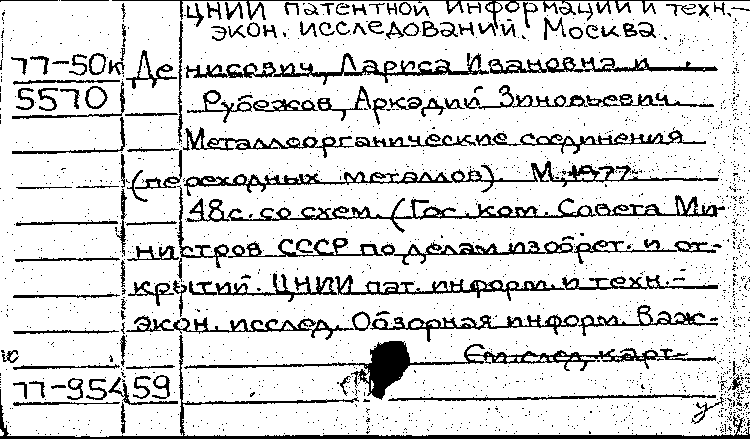 ЦНИИ патентной информации и техн.-
экон. исследований. Москва.
77-50к Денисович, Лариса Ивановна и
5570 Рубежов, Аркадий Зиновьевич.
Металлоорганические соединения
(переходных металлов). М., 1977.
48 с. со схем. (Гос. ком. Совета Ми-
нистров СССР по делам изобрет. и от-
крытий. ЦНИИ пат. информ. и техн.-
экон. исслед. Обзорная информ. Важ-
См. след. карт.
77-95459